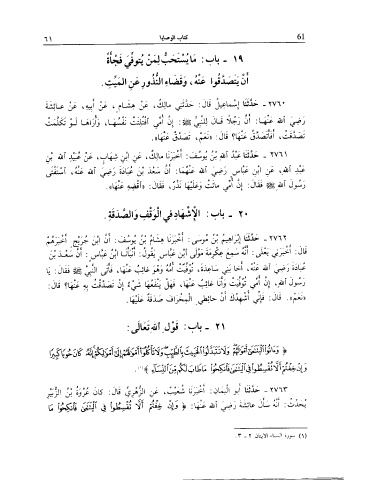 61 كتاب الوصايا ٦١
١٩ - باب: مَا يُسْتَحَبُّ لِمَنْ يُتوفّي فَجْأَةً
أَنْ يَتَصَدَّقُوا عَنْهُ، وَقَضَاءِ النُّذُورِ عَنِ المَيِّتِ.
٢٧٦٠ - حَدَّثَنَا إِسماعيلُ قَالَ: حَدَّثَني مالِكٌ، عَنْ هِشَامٍ، عَنْ أَبِيهِ، عَنْ عائشَةَ
رَضِيَ اللهُ عَنْهَا: أَنَّ رَجُلًا قَالَ لِلنَّبِيِّ ﷺ: إِنَّ أُمِّي افْتُلِتَتْ نَفْسُهَا، وَأُرَاهَا لَوْ تَكَلَّمَتْ
تَصَدَّقَتْ، أَفَأَتَصَدَّقُ عَنْهَا؟ قَالَ: «نَعَمْ، تَصَدَّقْ عَنْهَا».
٢٧٦١ - حَدَّثَنَا عَبْدُ اللهِ بْنُ يُوسُفَ: أَخْبَرَنَا مالِكٌ، عَنِ ابْنِ شِهَابٍ، عَنْ عُبَيْدِ اللهِ بْنِ
عَبْدِ اللهِ، عَنِ ابْنِ عَبَّاسٍ رَضِيَ اللهُ عَنْهُمَا: أَنَّ سَعْدَ بْنَ عُبَادَةَ رَضِيَ اللهُ عَنْهُ، اسْتَفْتَى
رَسُولَ اللهِ ﷺ فَقَالَ: إِنَّ أُمِّي ماتَتْ وَعَلَيْهَا نَذْرٌ، فَقَالَ: «اقْضِهِ عَنْهَا».
٢٠ - باب: الإِشْهَادِ في الْوَقْفِ وَالصَّدَقَةِ.
٢٧٦٢ - حَدَّثَنَا إِبراهيمُ بْنُ مُوسى: أَخْبَرَنَا هِشَامُ بْنُ يُوسُفَ: أَنَّ ابْنَ جُرَيْجٍ أَخْبَرَهُمْ
قَالَ: أَخْبَرَنِي يَعْلَى: أَنَّهُ سَمِعَ عِكْرِمَةَ مَوْلَى ابْنِ عَبَّاسٍ يَقُولُ: أَنْبَأَنَا ابْنُ عَبَّاسٍ: أَنَّ سَعْدَ بْنَ
عُبَادَةَ رَضِيَ اللهُ عَنْهُ، أَخا بَنِي ساعِدَةَ، تُوُفِّيَتْ أُمُّهُ وَهُوَ غائِبٌ عَنْهَا، فَأَتَى النَّبِيَّ ﷺ فَقَالَ: يَا
رَسُولَ اللهِ، إِنَّ أُمِّي تُوُفِّيَتْ وَأَنَا غائِبٌ عَنْهَا، فَهَلْ يَنْفَعُهَا شَيْءٌ إِنْ تَصَدَّقْتُ بِهِ عَنْهَا؟ قَالَ:
«نَعَمْ». قَالَ: فَإِنِّي أُشْهِدُكَ أَنَّ حائِطِي المِخْرَافَ صَدَقَةٌ عَلَيْهَا.
٢١ - باب: قَوْلِ اللهِ تَعَالَى:
﴿ وَءَاتُوا۟ ٱلْيَتَٰمَىٰٓ أَمْوَٰلَهُمْ وَلَا تَتَبَدَّلُوا۟ ٱلْخَبِيثَ بِٱلطَّيِّبِ وَلَا تَأْكُلُوٓا۟ أَمْوَٰلَهُمْ إِلَىٰٓ أَمْوَٰلِكُمْ إِنَّهُۥ كَانَ حُوبًا كَبِيرًا
وَإِنْ خِفْتُمْ أَلَّا تُقْسِطُوا۟ فِى ٱلْيَتَٰمَىٰ فَٱنكِحُوا۟ مَا طَابَ لَكُم مِّنَ ٱلنِّسَآءِ ﴾(١).
٢٧٦٣ - حَدَّثَنَا أَبُو الْيَمَانِ: أَخْبَرَنَا شُعَيْبٌ، عَنِ الزُّهْرِيِّ قَالَ: كانَ عُرْوَةُ بْنُ الزُّبَيْرِ
يُحَدِّثُ: أَنَّهُ سَأَلَ عائشَةَ رَضِيَ اللهُ عَنْهَا: ﴿ وَإِنْ خِفْتُمْ أَلَّا تُقْسِطُوا فِي الْيَتَامَى فَانْكِحُوا مَا
(١) سورة النساء الآيتان ٢ - ٣.